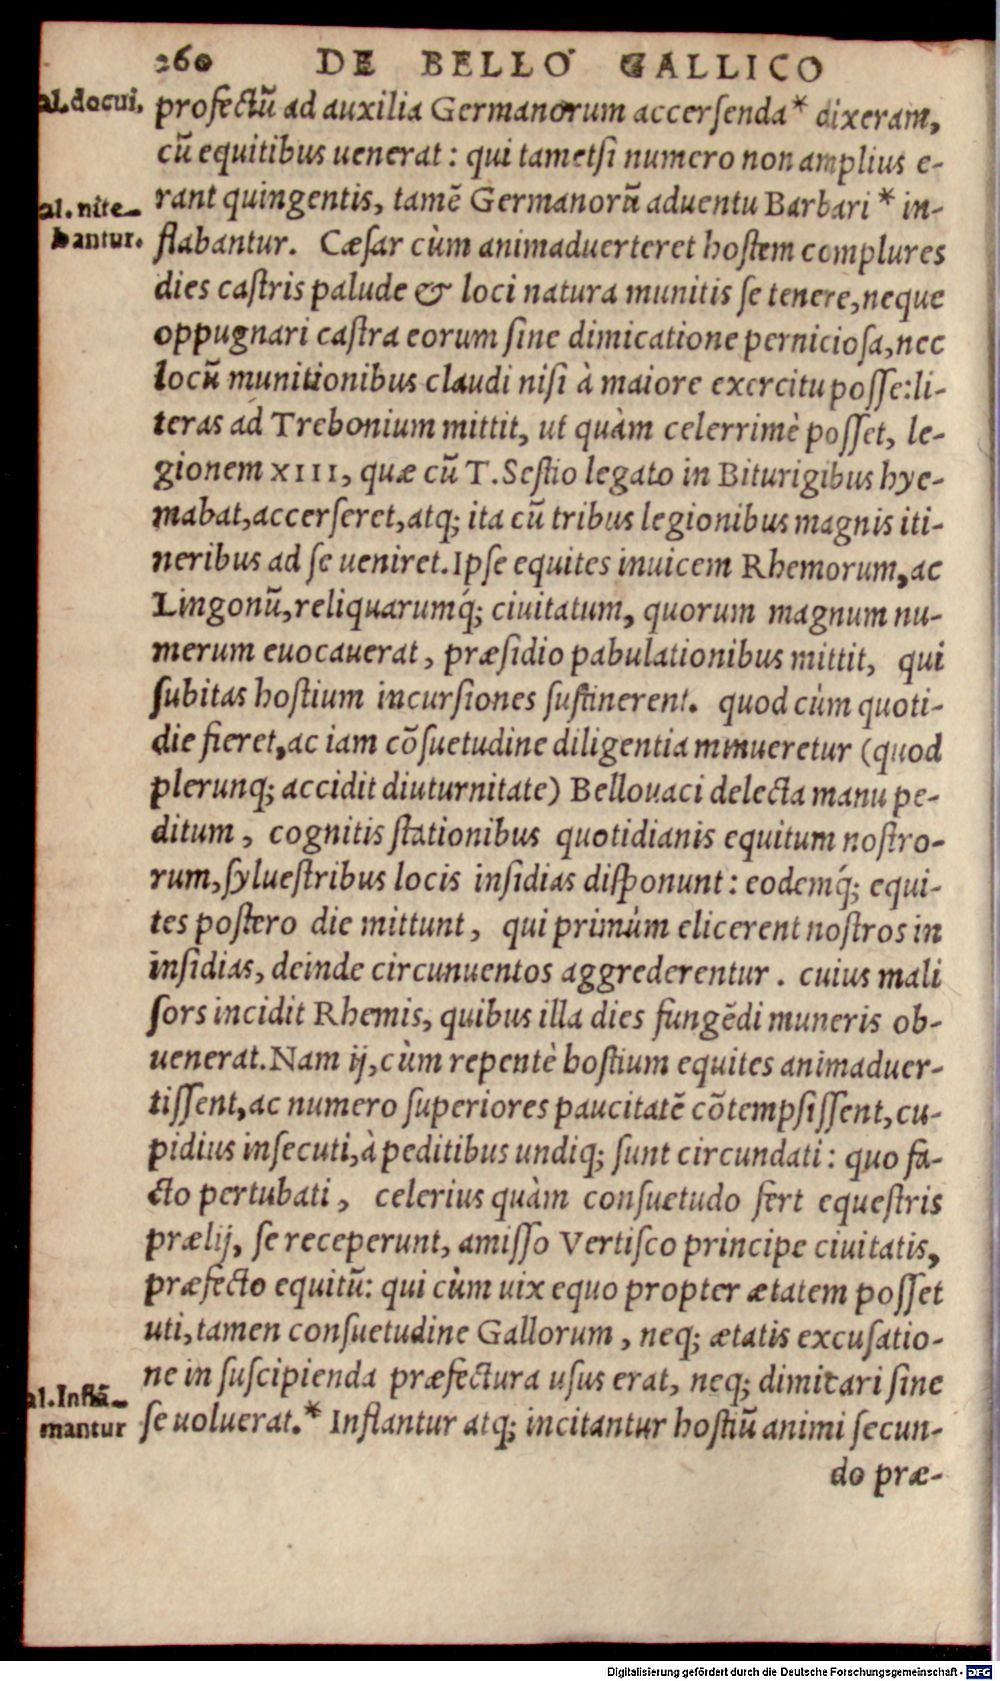 260 DE BELLO GALLICO
al. docui.
profectũ ad auxilia Germanorum accersenda* dixeram,
cũ equitibus uenerat: qui tametsi numero non amplius e-
al. nite-
bantur.
rant quingentis, tamẽ Germanorũ aduentu Barbari * in-
flabantur. Cæsar cùm animaduerteret hostem complures
dies castris palude & loci natura munitis se tenere, neque
oppugnari castra eorum sine dimicatione perniciosa, nec
locũ munitionibus claudi nisi à maiore exercitu posse: li-
teras ad Trebonium mittit, ut quàm celerrimè posset, le-
gionem XIII, quæ cũ T. Sestio legato in Biturigibus hye-
mabat, accerseret, atq; ita cũ tribus legionibus magnis iti-
neribus ad se ueniret. Ipse equites inuicem Rhemorum, ac
Lingonũ, reliquarumq́; ciuitatum, quorum magnum nu-
merum euocauerat, præsidio pabulationibus mittit, qui
subitas hostium incursiones sustinerent. quod cùm quoti-
die fieret, ac iam cõsuetudine diligentia minueretur (quod
plerunq; accidit diuturnitate) Bellouaci delecta manu pe-
ditum, cognitis stationibus quotidianis equitum nostro-
rum, syluestribus locis insidias disponunt: eodemq́; equi-
tes postero die mittunt, qui primùm elicerent nostros in
insidias, deinde circunuentos aggrederentur. cuius mali
sors incidit Rhemis, quibus illa dies fungẽdi muneris ob-
uenerat. Nam ij, cùm repentè hostium equites animaduer-
tissent, ac numero superiores paucitatẽ cõtempsissent, cu-
pidius insecuti, à peditibus undiq; sunt circundati: quo fa-
cto pertubati, celerius quàm consuetudo fert equestris
prælij, se receperunt, amisso Vertisco principe ciuitatis,
præfecto equitũ: qui cùm uix equo propter ætatem posset
uti, tamen consuetudine Gallorum, neq; ætatis excusatio-
ne in suscipienda præfectura usus erat, neq; dimicari sine
al. Inflã-
mantur
se uoluerat.* Inflantur atq; incitantur hostiũ animi secun-
do præ-
Digitalisierung gefördert durch die Deutsche Forschungsgemeinschaft - DFG